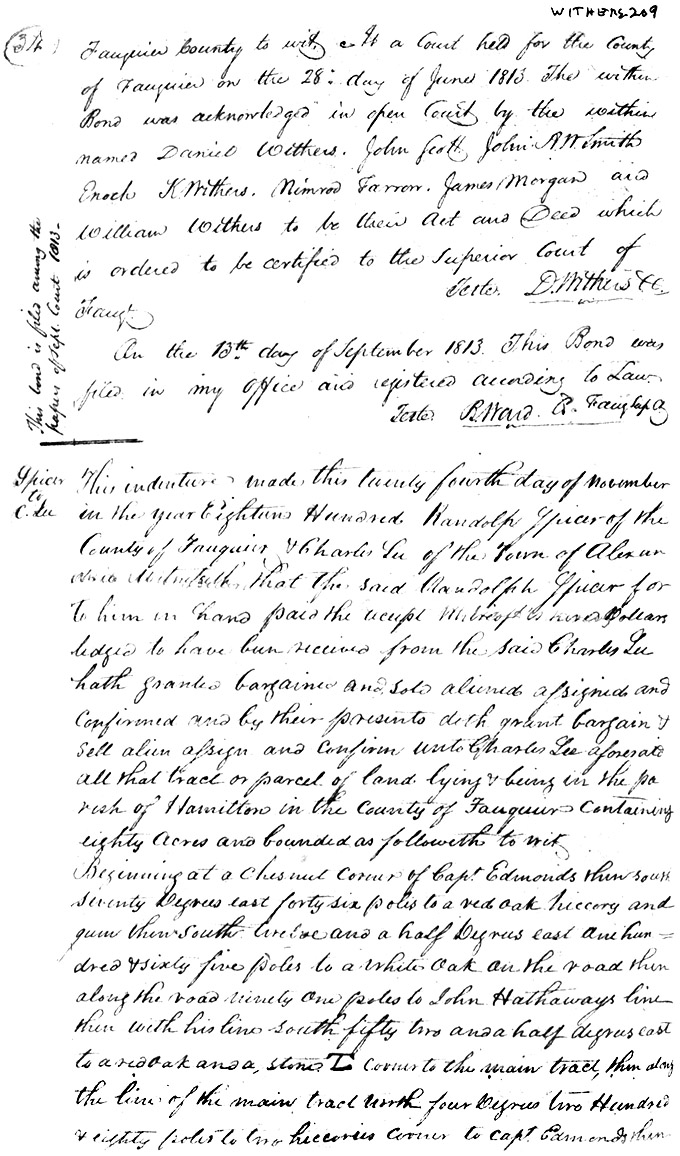 WITHERS-209
Fauquier County to wit, At a Court held for the County
of Fauquier on the 28th day of June 1813. The within
Bond was acknowledged in open Court by the within
named Daniel Withers. John Scott John A. W. Smith
Enoch K. Withers. Nimrod Farrow. James Morgan and
William Withers to be their Act and Deed which
is ordered to be certified to the Superior Court of
Teste. D. Withers CC.
Fauqr
On the 13th day of September 1813. This Bond was
filed in my Office and registered according to Law
Teste B. Ward. Fauq Sup Ct
This bond is filed among the
papers of Sept. Court 1813.
Spicer
to
C. Lee
This indenture made this twenty fourth day of November
in the year Eighteen Hundred Randolph Spicer of the
County of Fauquier & Charles Lee of the Town of Alexan
dria Witnesseth, that the said Randolph Spicer for
to him in hand paid the receipt Dollars
ledged to have been received from the said Charles Lee
hath granted bargained and sold aliened assigned and
Confirmed and by their presents doth grant bargain &
Sell alien assign and Confirm unto Charles Lee aforesaid
all that tract or parcel of land lying & being in the pa
rish of Hamilton in the County of Fauquier Containing
eighty Acres and bounded as followeth to wit
Beginning at a Chesnut Corner of Capt. Edmonds then south
seventy Degrees east forty six poles to a red oak hiccory and
gum then south twelve and a half Degrees east One hun=
dred & sixty five poles to a white Oak on the road then
along the road ninety One poles to John Hathaways line
then with his line south fifty two and a half degrees east
to a red oak and a, stone Corner to the main tract, then along
the line of the main tract north four Degrees two Hundred
& eighty poles to two hiccories Corner to Capt. Edmonds then